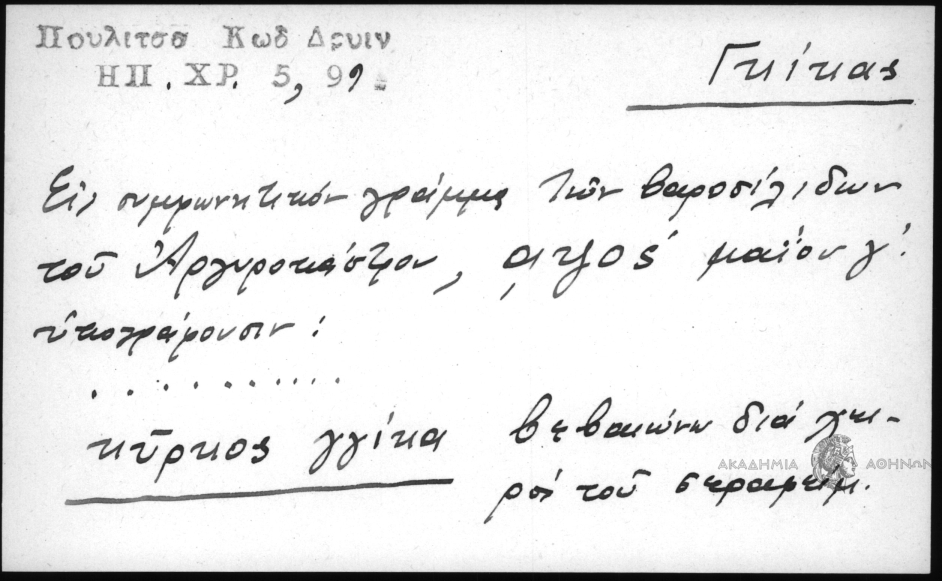 Πουλιτσα Κωδ Δρυιν
ΗΠ. ΧΡ. 5, 99.
Γκίκας
Εἰς συμφωνητικόν γράμμα τῶν βαροσιλιδων
τοῦ Ἀργυροκάστρου, ͵αψος μαΐου γ΄.
ὑπογράφουσιν:
. . . . . . . . . . .
κῦρκος γγίκα βεβαιώνω διά χει-
ρός τοῦ σεραφείμ.
ΑΚΑΔΗΜΙΑ ΑΘΗΝΩΝ